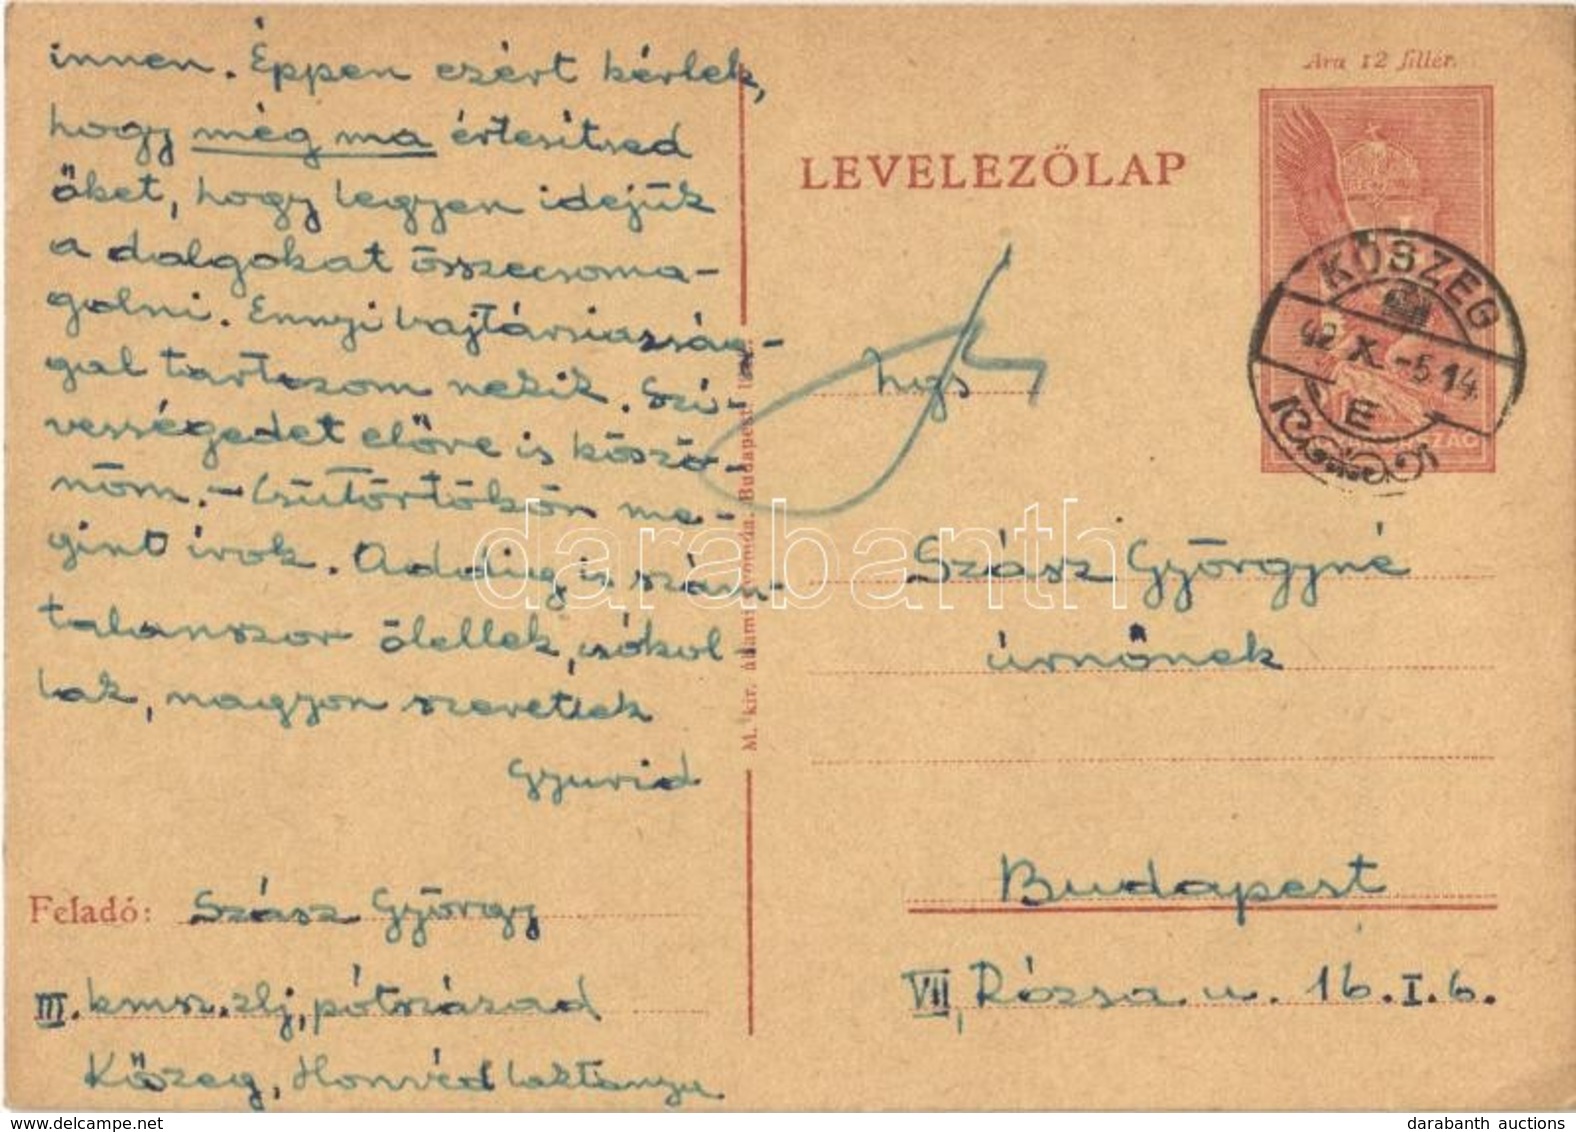 innen. Éppen ezért kérlek,
hogy még ma értesítsed
őket, hogy legyen idejük
a dolgokat összecsoma-
golni. Ennyi bajtársiasság-
gal tartozom nekik. Szí-
vességedet előre is köszö-
nöm. - Csütörtökön me-
gint írok. Addig is szám-
talanszor ölellek, csókol-
lak, nagyon szeretlek
Gyurid
Feladó: Szász György
III. kmsz. zlj, pótszázad
Kőszeg, Honvéd laktanya
M. kir. állami nyomda. Budapest.
Ára 12 fillér.
LEVELEZŐLAP
KŐSZEG
42 X. -5 14
E
Ngs
Szász Györgyné
úrnőnek
Budapest
VII, Rózsa u. 16. I. 6.
darabanth
darabanth auctions